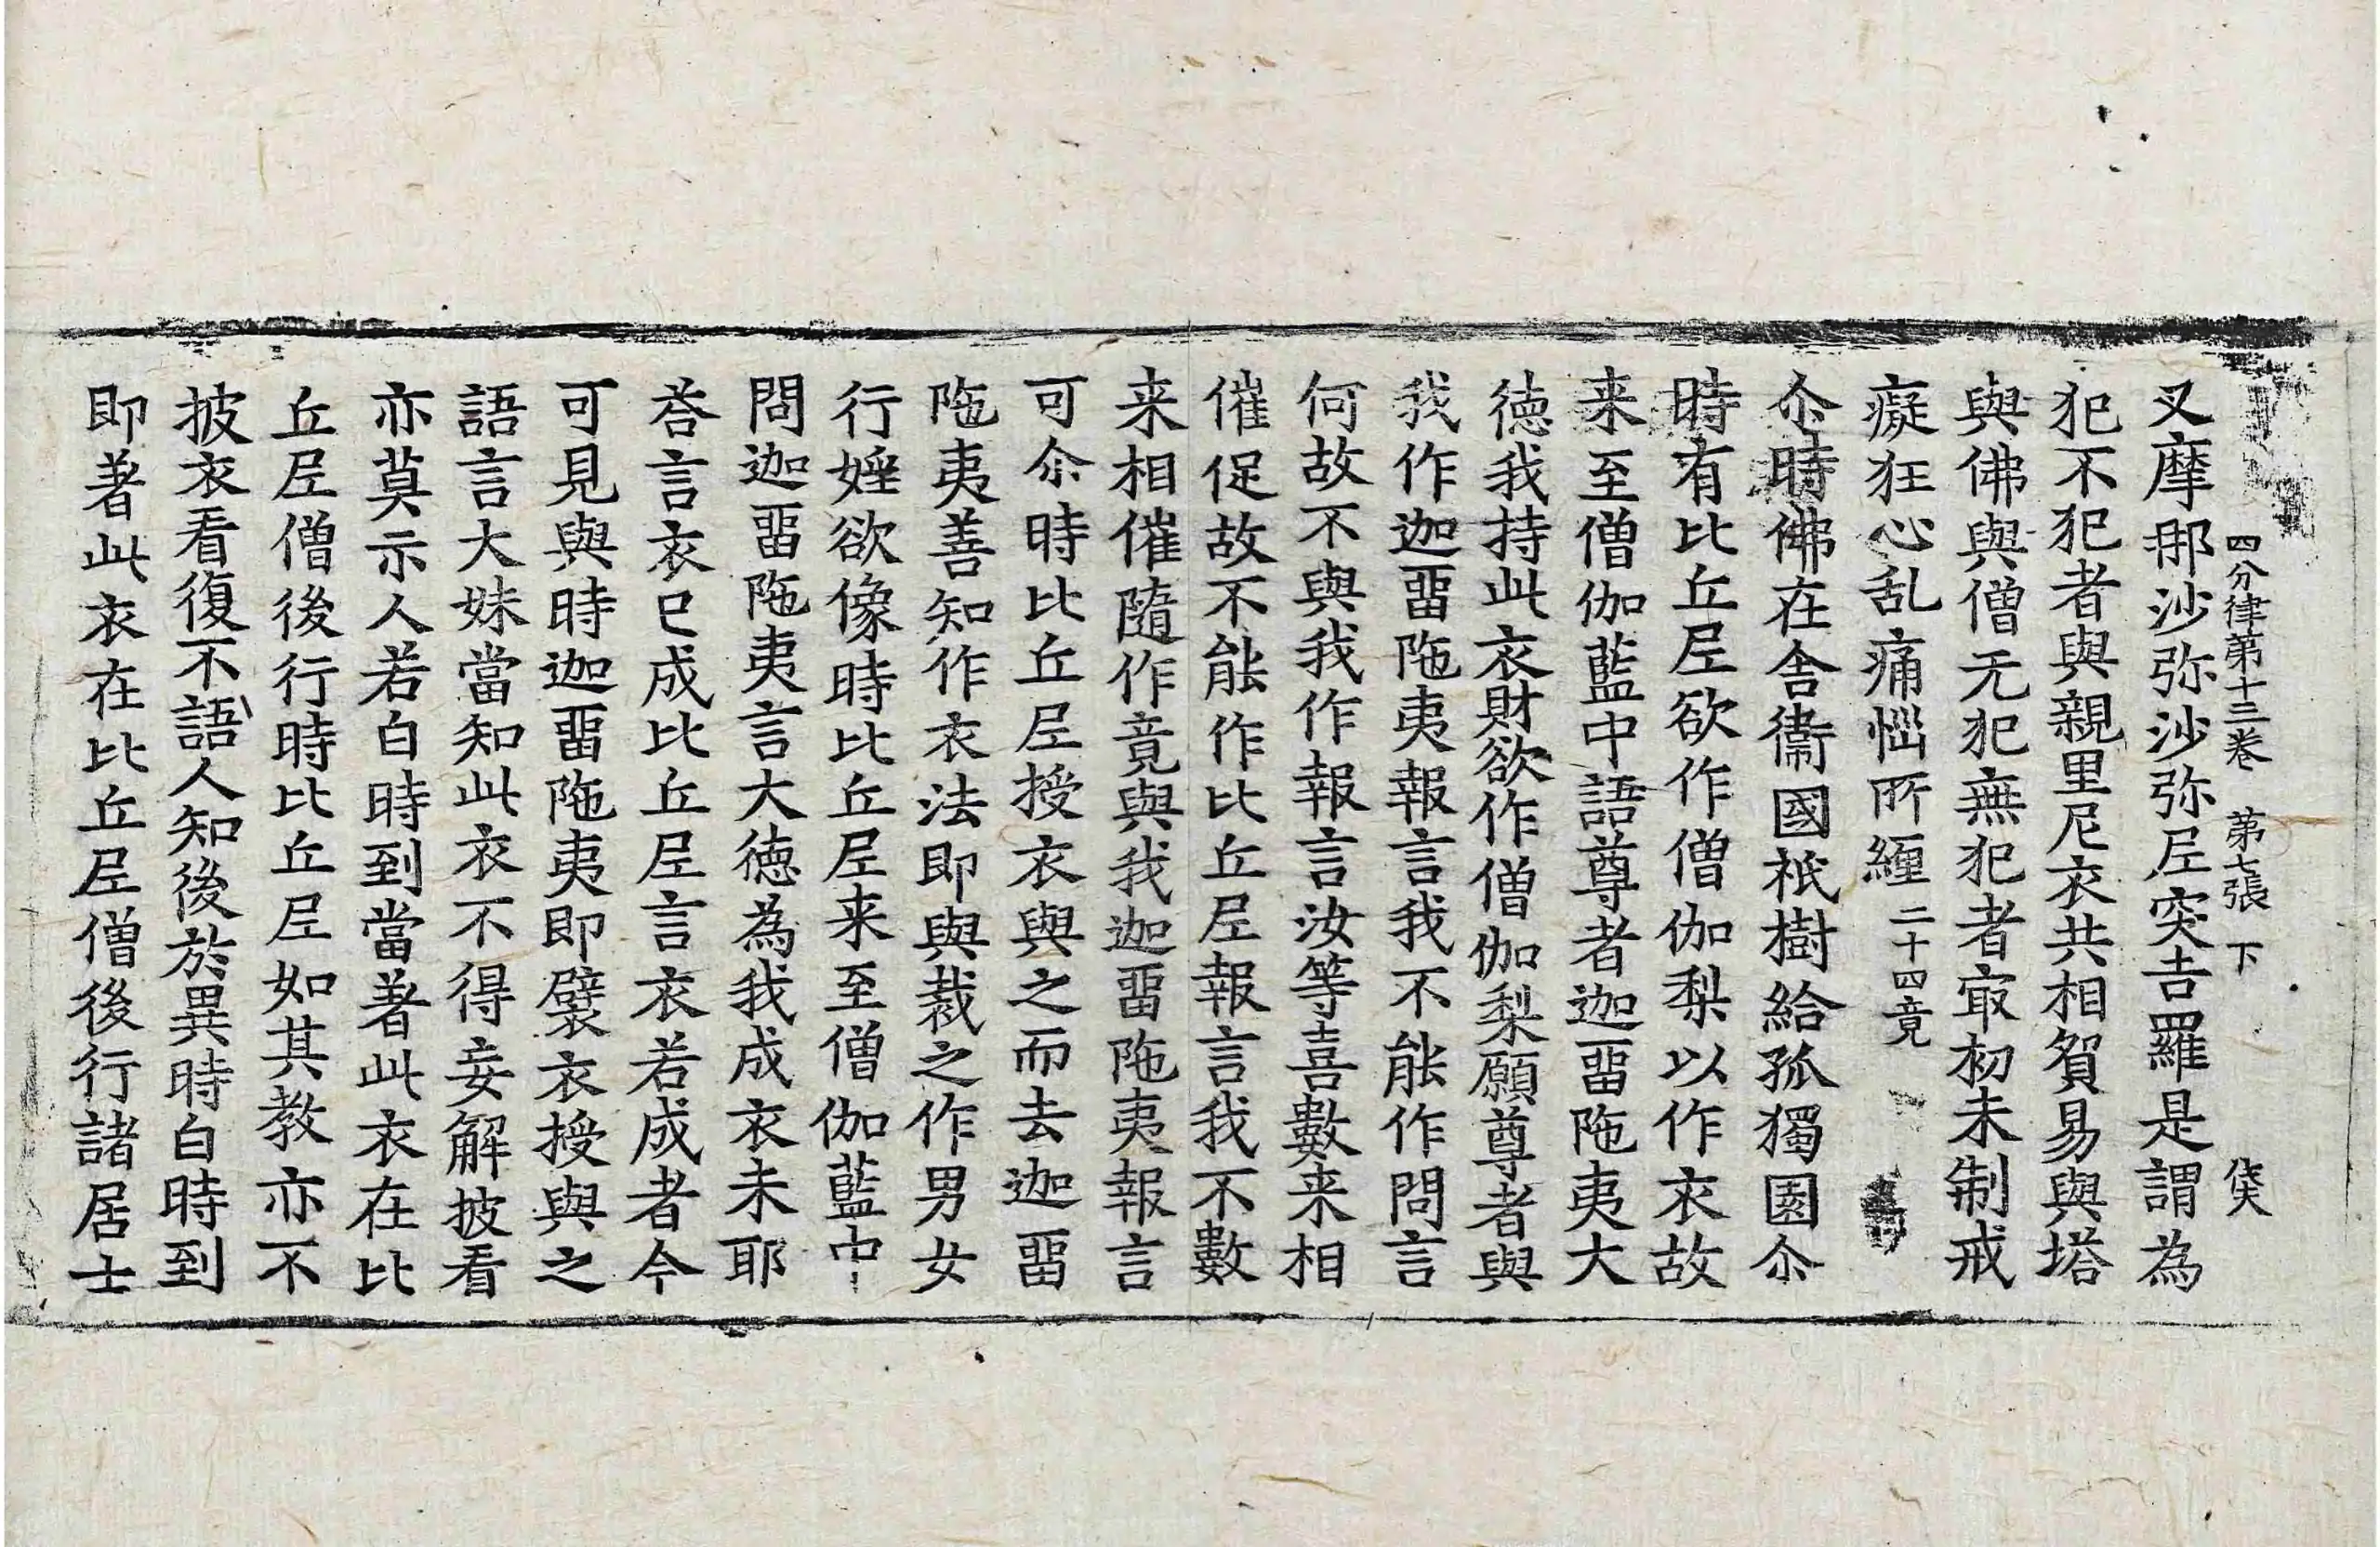 四分律第十三卷 第七張 下 佚
叉摩那沙弥沙弥𡰱突吉羅是謂為
犯不犯者與親里尼衣共相貿易與塔
與佛與僧无犯無犯者㝡初未制戒
癡狂心乱痛惱所纏二十四竟
尒時佛在舍衞國祇樹給孤獨園尒
時有比丘𡰱欲作僧伽梨以作衣故
来至僧伽藍中語尊者迦留陁夷大
德我持此衣財欲作僧伽梨願尊者與
我作迦留陁夷報言我不能作問言
何故不與我作報言汝等喜數来相
催促故不能作比丘𡰱報言我不數
来相催隨作竟與我迦留陁夷報言
可尒時比丘𡰱授衣與之而去迦留
陁夷善知作衣法即與裁之作男女
行婬欲像時比丘𡰱来至僧伽藍中
問迦留陁夷言大德為我成衣未耶
荅言衣已成比丘𡰱言衣若成者今
可見與時迦留陁夷即襞衣授與之
語言大妹當知此衣不得妄解披看
亦莫示人若白時到當著此衣在比
丘𡰱僧後行時比丘𡰱如其教亦不
披衣看復不語人知後於異時白時到
即著此衣在比丘𡰱僧後行諸居士